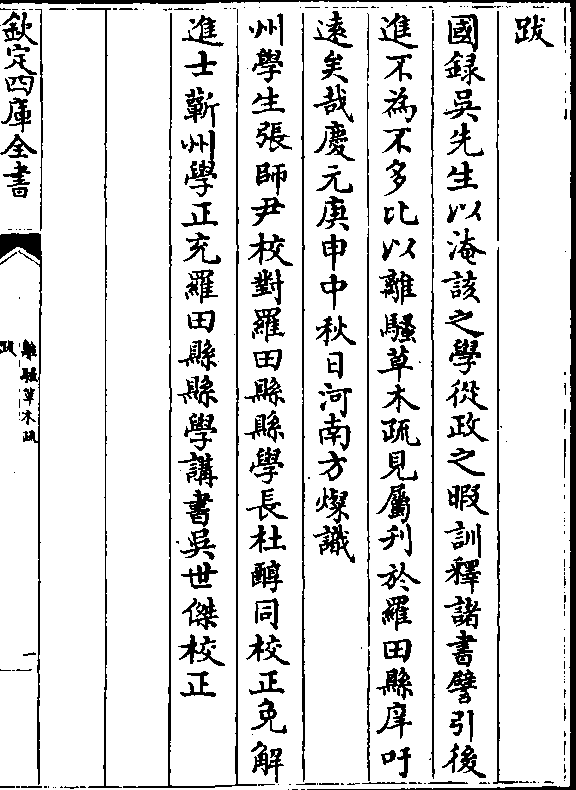 跋
國録吳先生以淹該之學從政之暇訓釋諸書譬引後
進不為不多比以離騷草木疏見屬刋於羅田縣庠吁
逺矣哉慶元庚申中秋日河南方燦識
州學生張師尹校對羅田縣縣學長杜醇同校正免解
進士蘄州學正充羅田縣縣學講書吳世傑校正
欽定四庫全書
離騷草木疏
跋
一